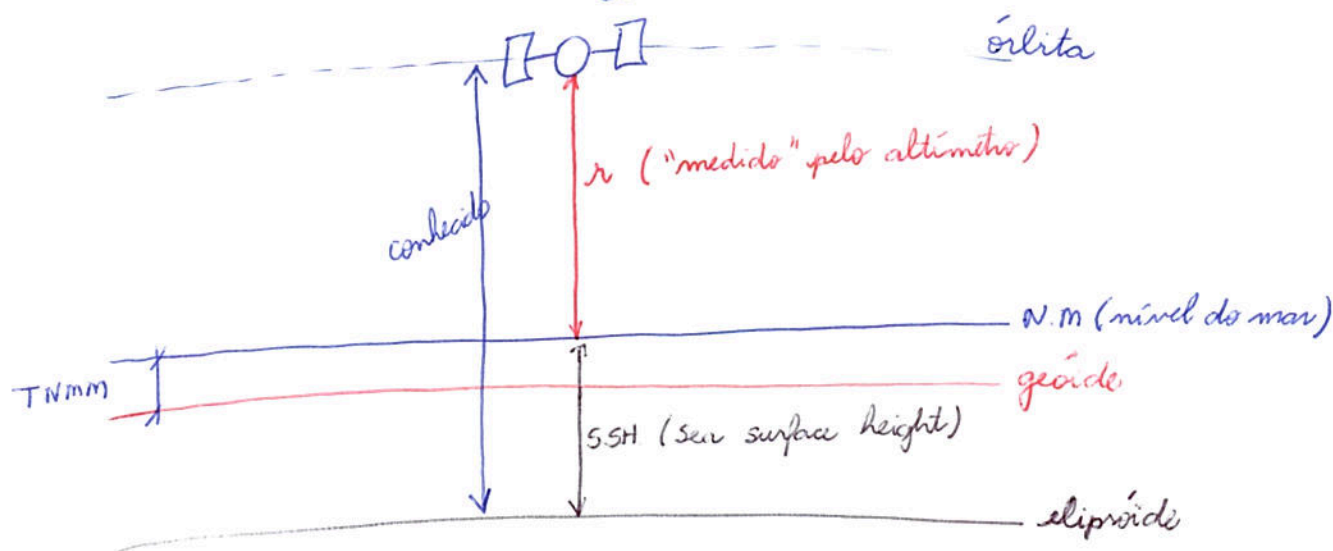 órbita
r ("medido" pelo altímetro)
conhecido
N.M (nível do mar)
TNMM
geóide
SSH (Sea surface height)
elipsóide